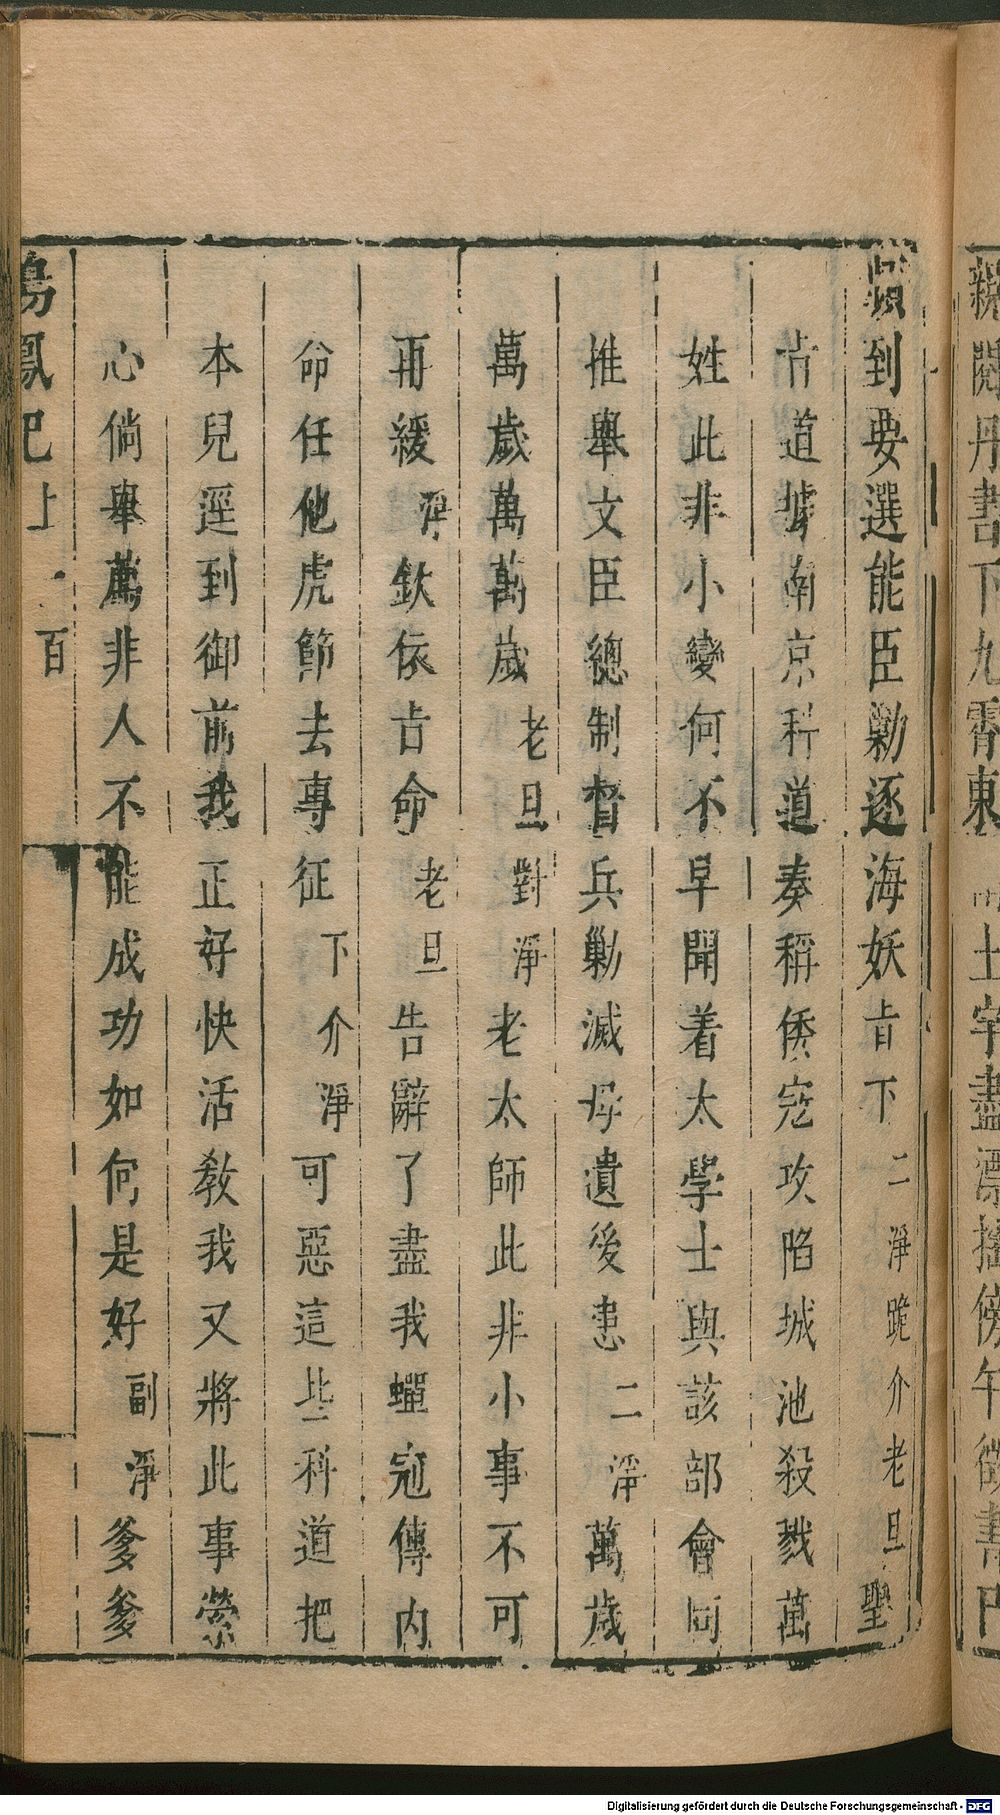 親閱丹書下九霄東 土宇盡漂搖傍午徵書
類到要選能臣勦逐海妖旨下二淨跪介老旦聖
旨道據南京科道奏稱倭宼攻陷城池殺戮萬
姓此非小變何不早聞着太學士與該部會同
推舉文臣總制督兵勦滅毋遺後患二淨萬歲
萬歲萬萬歲老旦對淨老太師此非小事不可
再緩淨欽依旨命老旦告辭了盡我蟬冠傳内
命任他虎節去專征下介淨可惡這些科道把
本兒逕到御前我正好快活教我又將此事縈
心倘舉薦非人不能成功如何是好副淨爹爹
鳴鳳記上 百
Digitalisierung gefördert durch die Deutsche Forschungsgemeinschaft - DFG